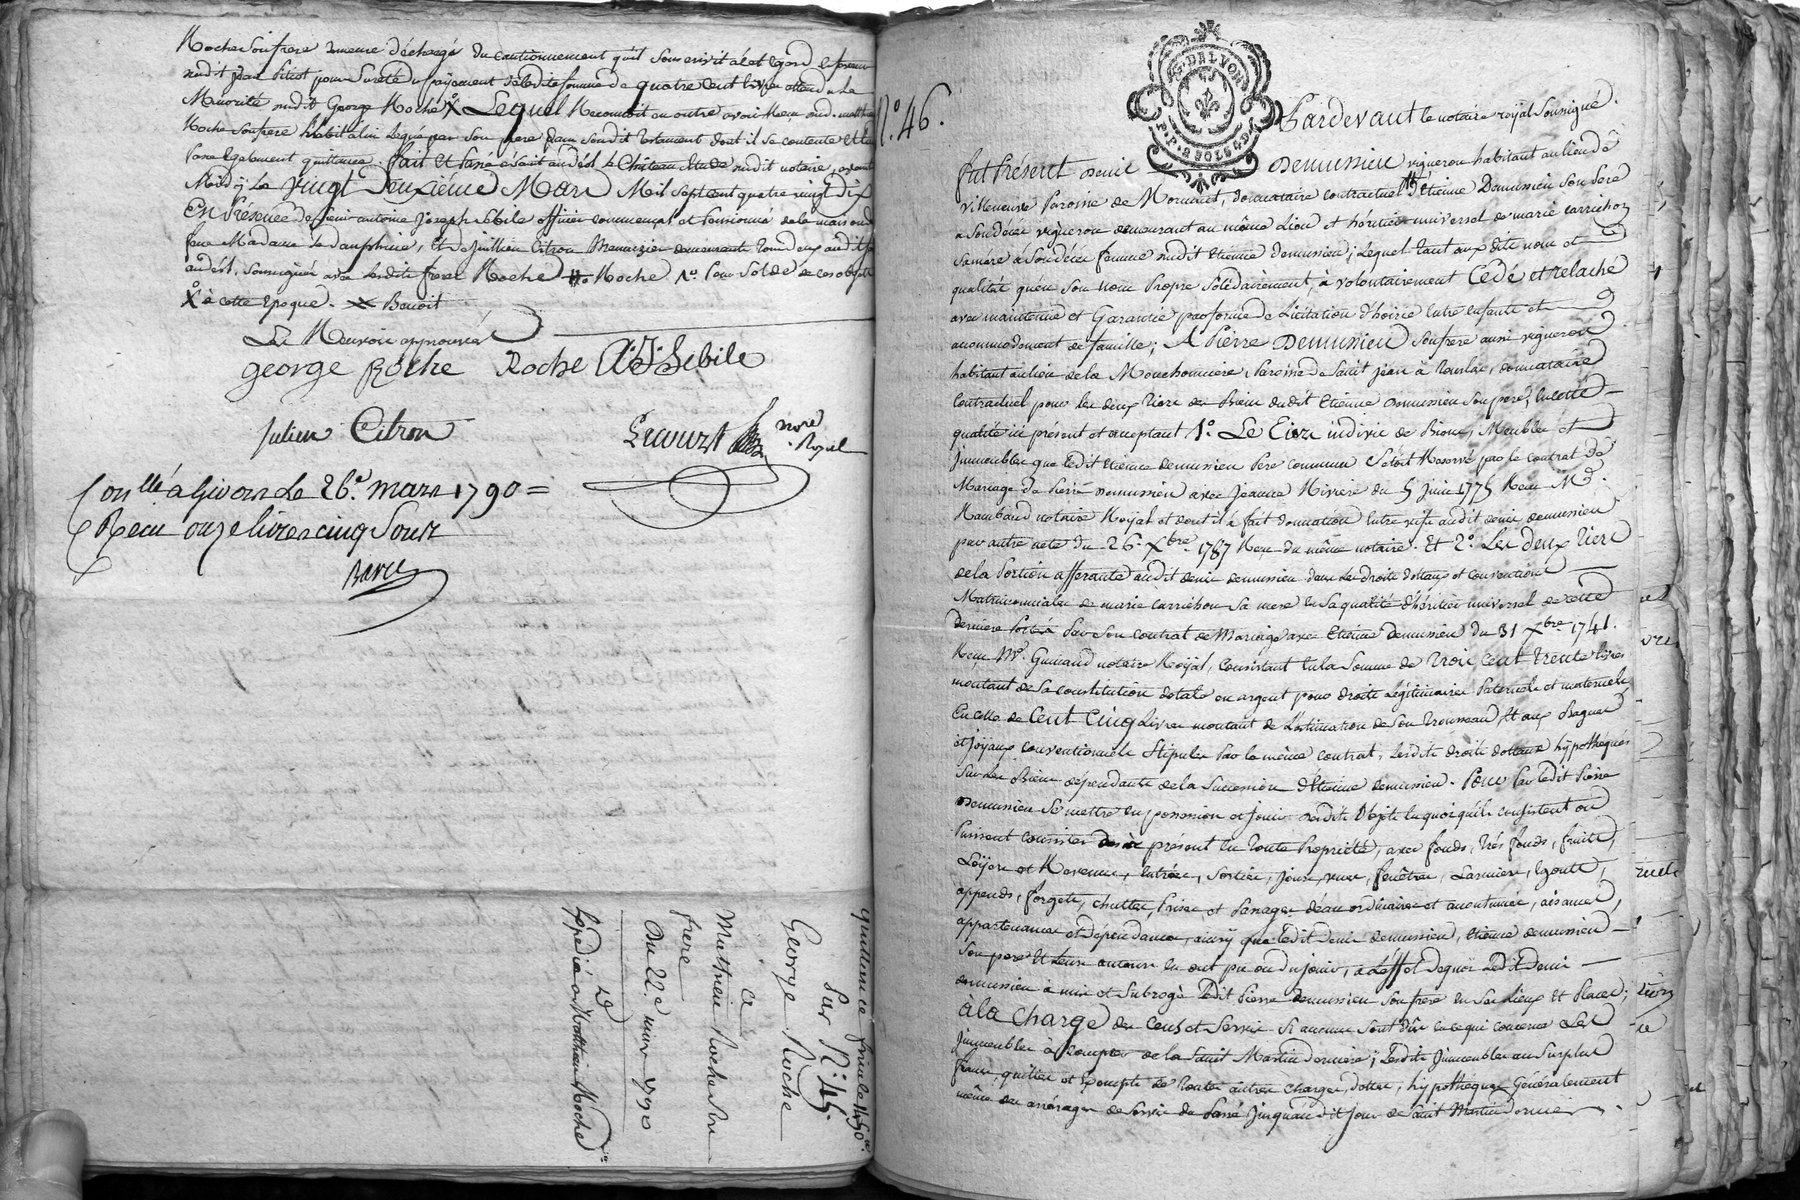 Roche son frere demeure déchargé du cautionnement qu'il souscrivit à cet egard
sudit jean pour sureté du payement de ladite somme de quatre cent livres attendu la
Minorité dudit George Roché X Lequel Reconnoit en outre avoir Reçu dud. mathieu
Roche son frere l'habit à lui Legué par son pere dans son dit testament dont il se contente et
passe également quittance. fait et passé à saint andéol le Château Etude dudit notaire, avant
Midÿ Le vingt deuxiéme Mars Mil Sept cent quatre vingt dix
En Présence de sieur antoine joseph Sebile officier commençal et Pensionné de la maison de
feue Madame la dauphine, et de jullien Citron Menuizier demeurants tous deux audit St
andéol, soussignés avec lesdits freres Roche # Roche 1o. pour solde de ces objets
X à cette Epoque. Benoit
Les Renvois approuvés
george Roche Roche A: J: Sebile
julien Citron
nore
Royal
Conllé à Givors Le 26e. mars 1790 =
Recu onze livres cinq Sous
quittance finale 450tt
Sur N: 45.
George Roche
a
Mathieu Roche son
frere
Du 22e. mars 1790
Expedié a Mathieu Roche
No. 46.
G. DE LYON
P. P. 2 SOLS 4 D.
Pardevant le notaire royal soussigné.
fut Présent denis Demussieu vigneron habitant au lieu de
villeneuve Paroisse de Mornant, donnataire contractuel d'Etienne Demussieu son pere
a son décès vigneron demeurant au même Lieu et héritier universel de marie carrichon
sa mere à son décès femme dudit Etienne demussieu; Lequel tant aux dits noms et
qualités qu'en son nom Propre solidairement, à volontairement Cédé et relaché
avec maintenue et Garantie par forme de Licitation d'hoirie entre enfants et
accommodement de famille; A Pierre Demussieu son frere aussi vigneron
habitant au lieu de la Mouchonniere, Paroisse de Saint jean à Touslas, donnataire
Contractuel pour les deux tiers des Biens dudit Etienne demussieu son pere, en cette
qualité ici présent et acceptant 1o. Le Tiers indivis des Biens, Meubles et
Jmmeubles que ledit Etienne demussieu pere commun s'etoit Reservé par le contrat de
Mariage de Pierre demussieu avec Jeanne Riviere du 5 juin 1775 Recu Me.
Rambaud notaire Royal et dont il à fait donnation entre vifs audit denis demussieu
par autre acte du 26. Xbre. 1787 Recu du même notaire. Et 2o. Les deux tiers
de la Portion afferante audit denis demussieu dans les droits dottaux et conventions
Matrimoniales de marie carrichon sa mere en sa qualité d'héritier universel de cette
derniere Portés Par son contrat de Mariage avec Etienne demussieu du 31 Xbre. 1741.
Recu Me. Guinand notaire Royal, consistant en la Somme de Trois cent trente Livres
montant de sa constitution dotale en argent pour droits Légitimaires Paternels et maternels
En celle de Cent Cinq Livres montant de L'estimation de son trousseau, Et aux Bagues
et joyaux conventionnels stipulés Par le même contrat, Lesdits droits dottaux hypothequés
sur les Biens dépendants de la Succession d'Etienne demussieu. Pour Par ledit Pierre
demussieu se mettre en possession et jouir desdits objets en quoi qu'ils consistent ou
Puissent consister dès à présent En toute Propriété, avec fonds, trés fonds, fruits,
Loyers et Revenus, Entrées, Sorties, jours, vues, fenêtres, Larmiers, Egouts,
appends, forgets, chuttes, Prises et Passages d'eau ordinaires et accoutumés, aisances,
appartenances et dependances, ainsy que ledit denis demussieu, Etienne demussieu
son pere et leurs auteurs en ont pu ou du jouir, à L'effet de quoi Ledit Denis
demussieu a mis et Subrogé ledit Pierre demussieu son frere en ses lieux et Place;
à la charge des Cens et Servis si aucuns sont dus en ce qui concerne Les
Jmmeubles à Compter de la Saint Martin derniere; Lesdits Jmmeubles au Surplus
francs, quittes et Exempts de toutes autres charges, dettes, hypotheques Généralement
même des arrérages de Servis du Passé jusqu'audit jour de Saint Martin dernier.